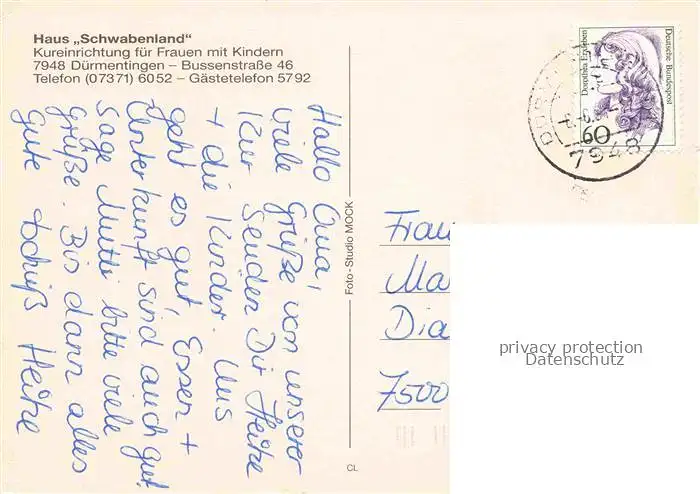 Haus „Schwabenland"
Kureinrichtung für Frauen mit Kindern
7948 Dürmentingen – Bussenstraße 46
Telefon (07371) 6052 – Gästetelefon 5792
Hallo Oma,
viele Grüße von unserer
Kur senden Dir Heike
+ die Kinder. Uns
geht es gut, Essen +
Unterkunft sind auch gut.
Sage Mutti bitte viele
Grüße. Bis dann alles
gute tschüß Heike
Foto-Studio MOCK
CL
Deutsche Bundespost
60
7948
Frau
Ma
Dia
7500
privacy protection
Datenschutz